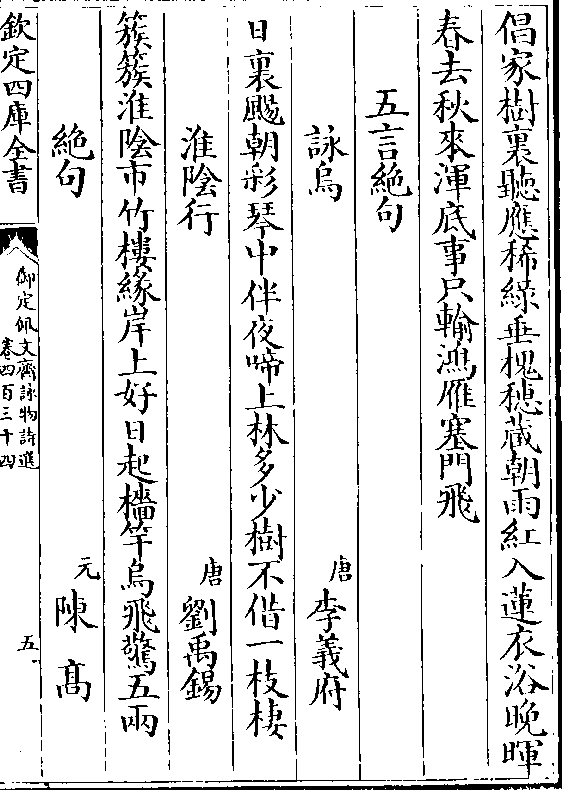 倡家樹裏聽應稀綠垂槐穂蔵朝雨紅入蓮衣浴晚暉
春去秋來渾底事只輸鴻雁塞門飛
五言絶句
詠烏　唐李義府
日裏颺朝彩琴中伴夜啼上林多少樹不借一枝棲
淮陰行　唐劉禹錫
簇簇淮陰市竹樓緣岸上好日起檣竿烏飛驚五兩
絶句　元陳高
欽定四庫全書
御定佩文齋詠物詩選
卷四百三十四
五